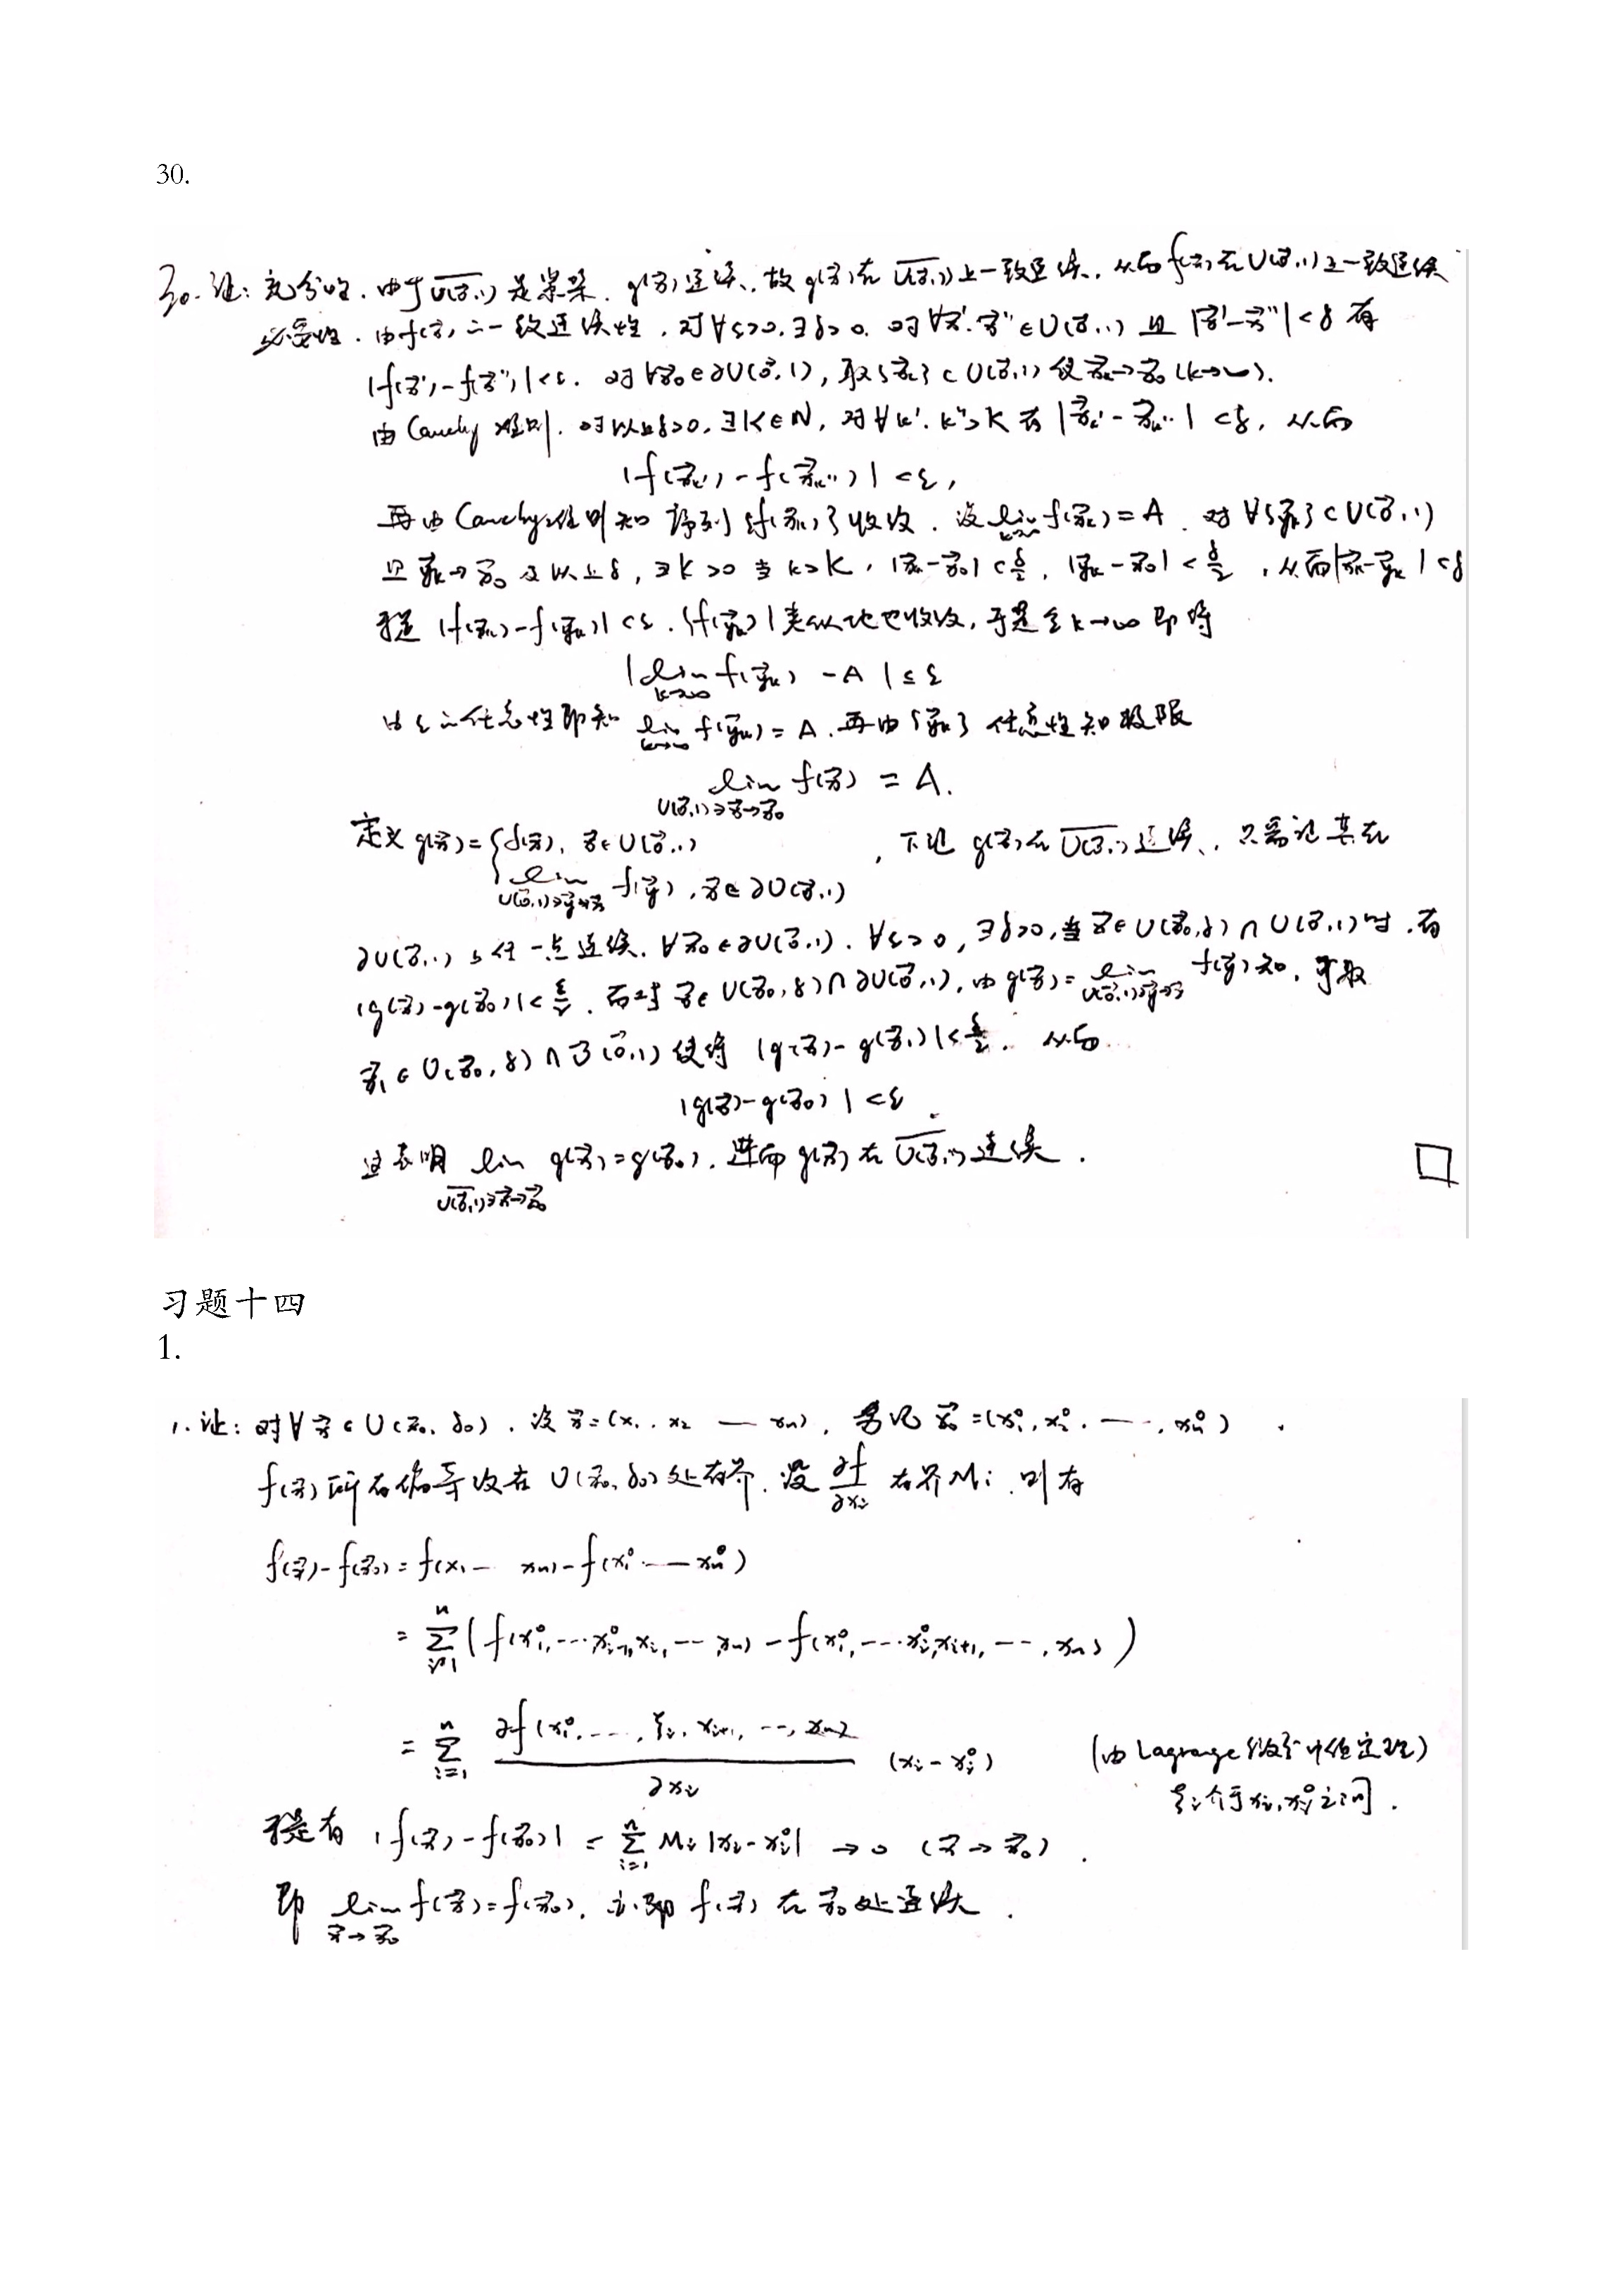 30.
30. 证: 充分性. 由于 $\overline{U(\vec{0},1)}$ 是紧集. $g(\vec{x})$ 连续, 故 $g(\vec{x})$ 在 $\overline{U(\vec{0},1)}$ 上一致连续. 从而 $f(\vec{x})$ 在 $U(\vec{0},1)$ 上一致连续
必要性. 由 $f(\vec{x})$ 的一致连续性, 对 $\forall \varepsilon>0, \exists \delta>0$. 对 $\forall \vec{x}', \vec{x}'' \in U(\vec{0},1)$ 且 $|\vec{x}'-\vec{x}''|<\delta$ 有
$|f(\vec{x}')-f(\vec{x}'')|<\varepsilon$. 对 $\forall \vec{x}_0 \in \partial U(\vec{0},1)$, 取 $\{\vec{x}_k\} \subset U(\vec{0},1)$ 使 $\vec{x}_k \to \vec{x}_0 (k\to\infty)$.
由 Cauchy 准则, 对以上 $\delta>0, \exists K \in N$, 对 $\forall k', k''>K$ 有 $|\vec{x}_{k'}-\vec{x}_{k''}|<\delta$, 从而
$|f(\vec{x}_{k'})-f(\vec{x}_{k''})|<\varepsilon$,
再由 Cauchy 准则知 序列 $\{f(\vec{x}_k)\}$ 收敛. 设 $\lim_{k\to\infty} f(\vec{x}_k)=A$. 对 $\forall \{\vec{y}_k\} \subset U(\vec{0},1)$
且 $\vec{y}_k \to \vec{x}_0$ 及以上 $\delta$, $\exists K>0$ 当 $k>K$, $|\vec{x}_k-\vec{x}_0|<\frac{\delta}{2}$, $|\vec{y}_k-\vec{x}_0|<\frac{\delta}{2}$, 从而 $|\vec{x}_k-\vec{y}_k|<\delta$
于是 $|f(\vec{x}_k)-f(\vec{y}_k)|<\varepsilon$. $\{f(\vec{y}_k)\}$ 类似地也收敛, 于是令 $k\to\infty$ 即得
$|\lim_{k\to\infty} f(\vec{y}_k)-A| \le \varepsilon$
由 $\varepsilon$ 的任意性即知 $\lim_{k\to\infty} f(\vec{y}_k)=A$. 再由 $\{\vec{y}_k\}$ 任意性知极限
$\lim_{U(\vec{0},1)\ni\vec{x}\to\vec{x}_0} f(\vec{x})=A$.
定义 $g(\vec{x})=\begin{cases} f(\vec{x}), & \vec{x}\in U(\vec{0},1) \\ \lim_{U(\vec{0},1)\ni\vec{y}\to\vec{x}} f(\vec{y}), & \vec{x}\in\partial U(\vec{0},1) \end{cases}$, 下证 $g(\vec{x})$ 在 $\overline{U(\vec{0},1)}$ 连续, 只需证其在
$\partial U(\vec{0},1)$ 上任一点连续. $\forall \vec{x}_0\in\partial U(\vec{0},1)$. $\forall \varepsilon>0, \exists \delta>0$, 当 $\vec{x}\in U(\vec{x}_0,\delta)\cap U(\vec{0},1)$ 时, 有
$|g(\vec{x})-g(\vec{x}_0)|<\frac{\varepsilon}{2}$. 而对 $\vec{x}\in U(\vec{x}_0,\delta)\cap\partial U(\vec{0},1)$, 由 $g(\vec{x})=\lim_{U(\vec{0},1)\ni\vec{y}\to\vec{x}} f(\vec{y})$ 知, 可取
$\vec{x}_1\in U(\vec{x}_0,\delta)\cap U(\vec{0},1)$ 使得 $|g(\vec{x})-g(\vec{x}_1)|<\frac{\varepsilon}{2}$. 从而
$|g(\vec{x})-g(\vec{x}_0)|<\varepsilon$.
这表明 $\lim_{\overline{U(\vec{0},1)}\ni\vec{x}\to\vec{x}_0} g(\vec{x})=g(\vec{x}_0)$, 进而 $g(\vec{x})$ 在 $\overline{U(\vec{0},1)}$ 连续. □
习题十四
1.
1. 证: 对 $\forall \vec{x}\in U(\vec{x}_0,\delta_0)$. 设 $\vec{x}=(x_1, x_2 \cdots x_n)$, 另记 $\vec{x}_0=(x_1^0, x_2^0, \cdots, x_n^0)$.
$f(\vec{x})$ 所有偏导数在 $U(\vec{x}_0,\delta_0)$ 处有界. 设 $\frac{\partial f}{\partial x_i}$ 有界 $M_i$ 则有
$f(\vec{x})-f(\vec{x}_0)=f(x_1 \cdots x_n)-f(x_1^0 \cdots x_n^0)$
$=\sum_{i=1}^{n}(f(x_1^0,\cdots x_{i-1}^0, x_i, \cdots, x_n)-f(x_1^0,\cdots x_i^0, x_{i+1}, \cdots, x_n))$
$=\sum_{i=1}^{n}\frac{\partial f(x_1^0,\cdots,\xi_i,x_{i+1},\cdots,x_n)}{\partial x_i}(x_i-x_i^0)$ (由 Lagrange 微分中值定理)
$\xi_i$ 介于 $x_i, x_i^0$ 之间.
于是有 $|f(\vec{x})-f(\vec{x}_0)| \le \sum_{i=1}^{n} M_i|x_i-x_i^0| \to 0 \ (\vec{x}\to\vec{x}_0)$.
即 $\lim_{\vec{x}\to\vec{x}_0} f(\vec{x})=f(\vec{x}_0)$, 亦即 $f(\vec{x})$ 在 $\vec{x}_0$ 处连续.